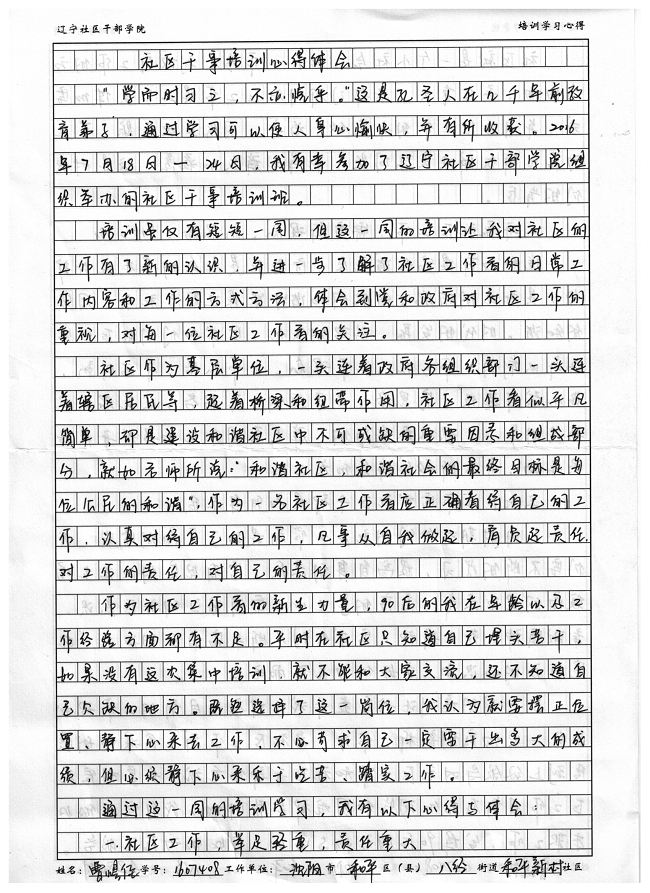 辽宁社区干部学院 培训学习心得
社区干事培训心得体会
"学而时习之，不亦悦乎。"这是孔圣人在几千年前教
育弟子，通过学习可以使人身心愉快，并有所收获。2016
年7月18日—24日，我有幸参加了辽宁社区干部学院组
织举办的社区干事培训班。
培训虽仅有短短一周，但这一周的培训让我对社区的
工作有了新的认识，并进一步了解了社区工作者的日常工
作内容和工作的方式方法，体会到党和政府对社区工作的
重视，对每一位社区工作者的关注。
社区作为基层单位，一头连着政府各组织部门一头连
着辖区居民等，起着桥梁和纽带作用，社区工作看似平凡
简单，却是建设和谐社区中不可或缺的重要因素和组成部
分，就如老师所说："和谐社区，和谐社会的最终目标是每
位公民的和谐"，作为一名社区工作者应正确看待自己的工
作，认真对待自己的工作，凡事从自我做起，肩负起责任
对工作的责任，对自己的责任。
作为社区工作者的新生力量，90后的我在年龄以及工
作经验方面都有不足。平时在社区只知道自己埋头苦干，
如果没有这次集中培训，就不能和大家交流，还不知道自
己欠缺的地方。既然选择了这一岗位，我认为就要摆正位
置，静下心来去工作，不必苛求自己一定要干出多大的成
绩，但必须静下心来乐于吃苦、踏实工作。
通过这一周的培训学习，我有以下心得与体会：
一.社区工作，举足轻重，责任重大
姓名： 学号：1607408 工作单位：沈阳市 和平 区（县） 八经 街道 和平新村社区